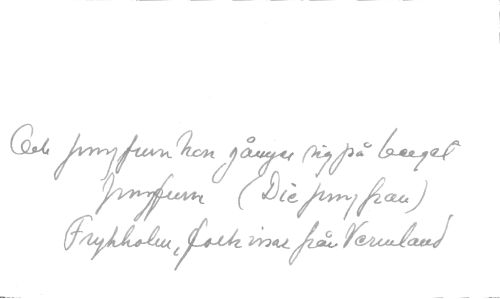 Och jungfrun hon gångar sig på berget
Jungfrun (Die Jungfrau)
Frykholm, Folkvisor från Vermland